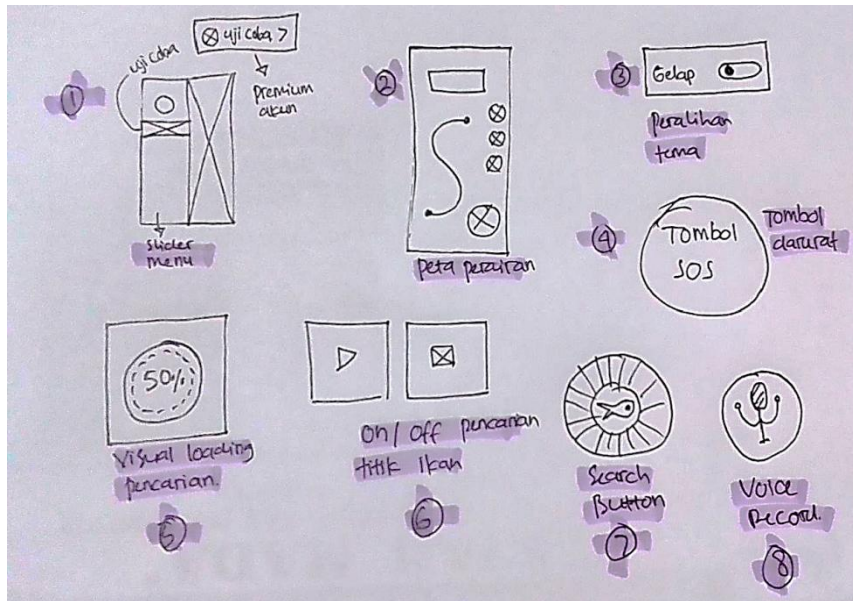 uji coba >
uji coba
Premium
akun
1
slider
menu
2
peta perairan
3
Gelap
peralihan
tema
4
Tombol
SOS
Tombol
darurat
50%
Visual loading
pencarian.
5
On / Off pencarian
titik Ikan
6
Search
Button
7
Voice
Record.
8